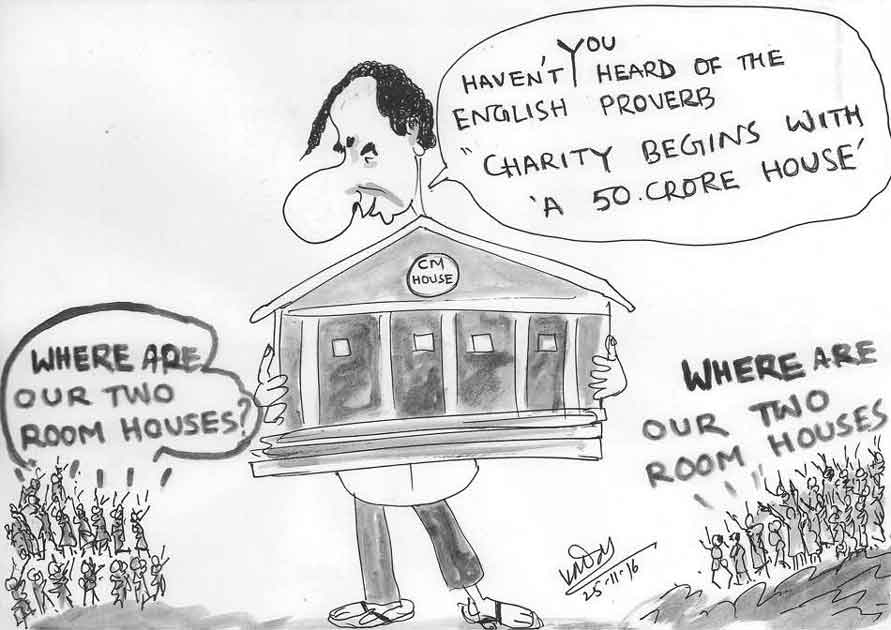 HAVEN'T YOU HEARD OF THE
ENGLISH PROVERB
"CHARITY BEGINS WITH
'A 50.CRORE HOUSE'
CM
HOUSE
WHERE ARE
OUR TWO
ROOM HOUSES?
WHERE ARE
OUR TWO
ROOM HOUSES
25-11-16